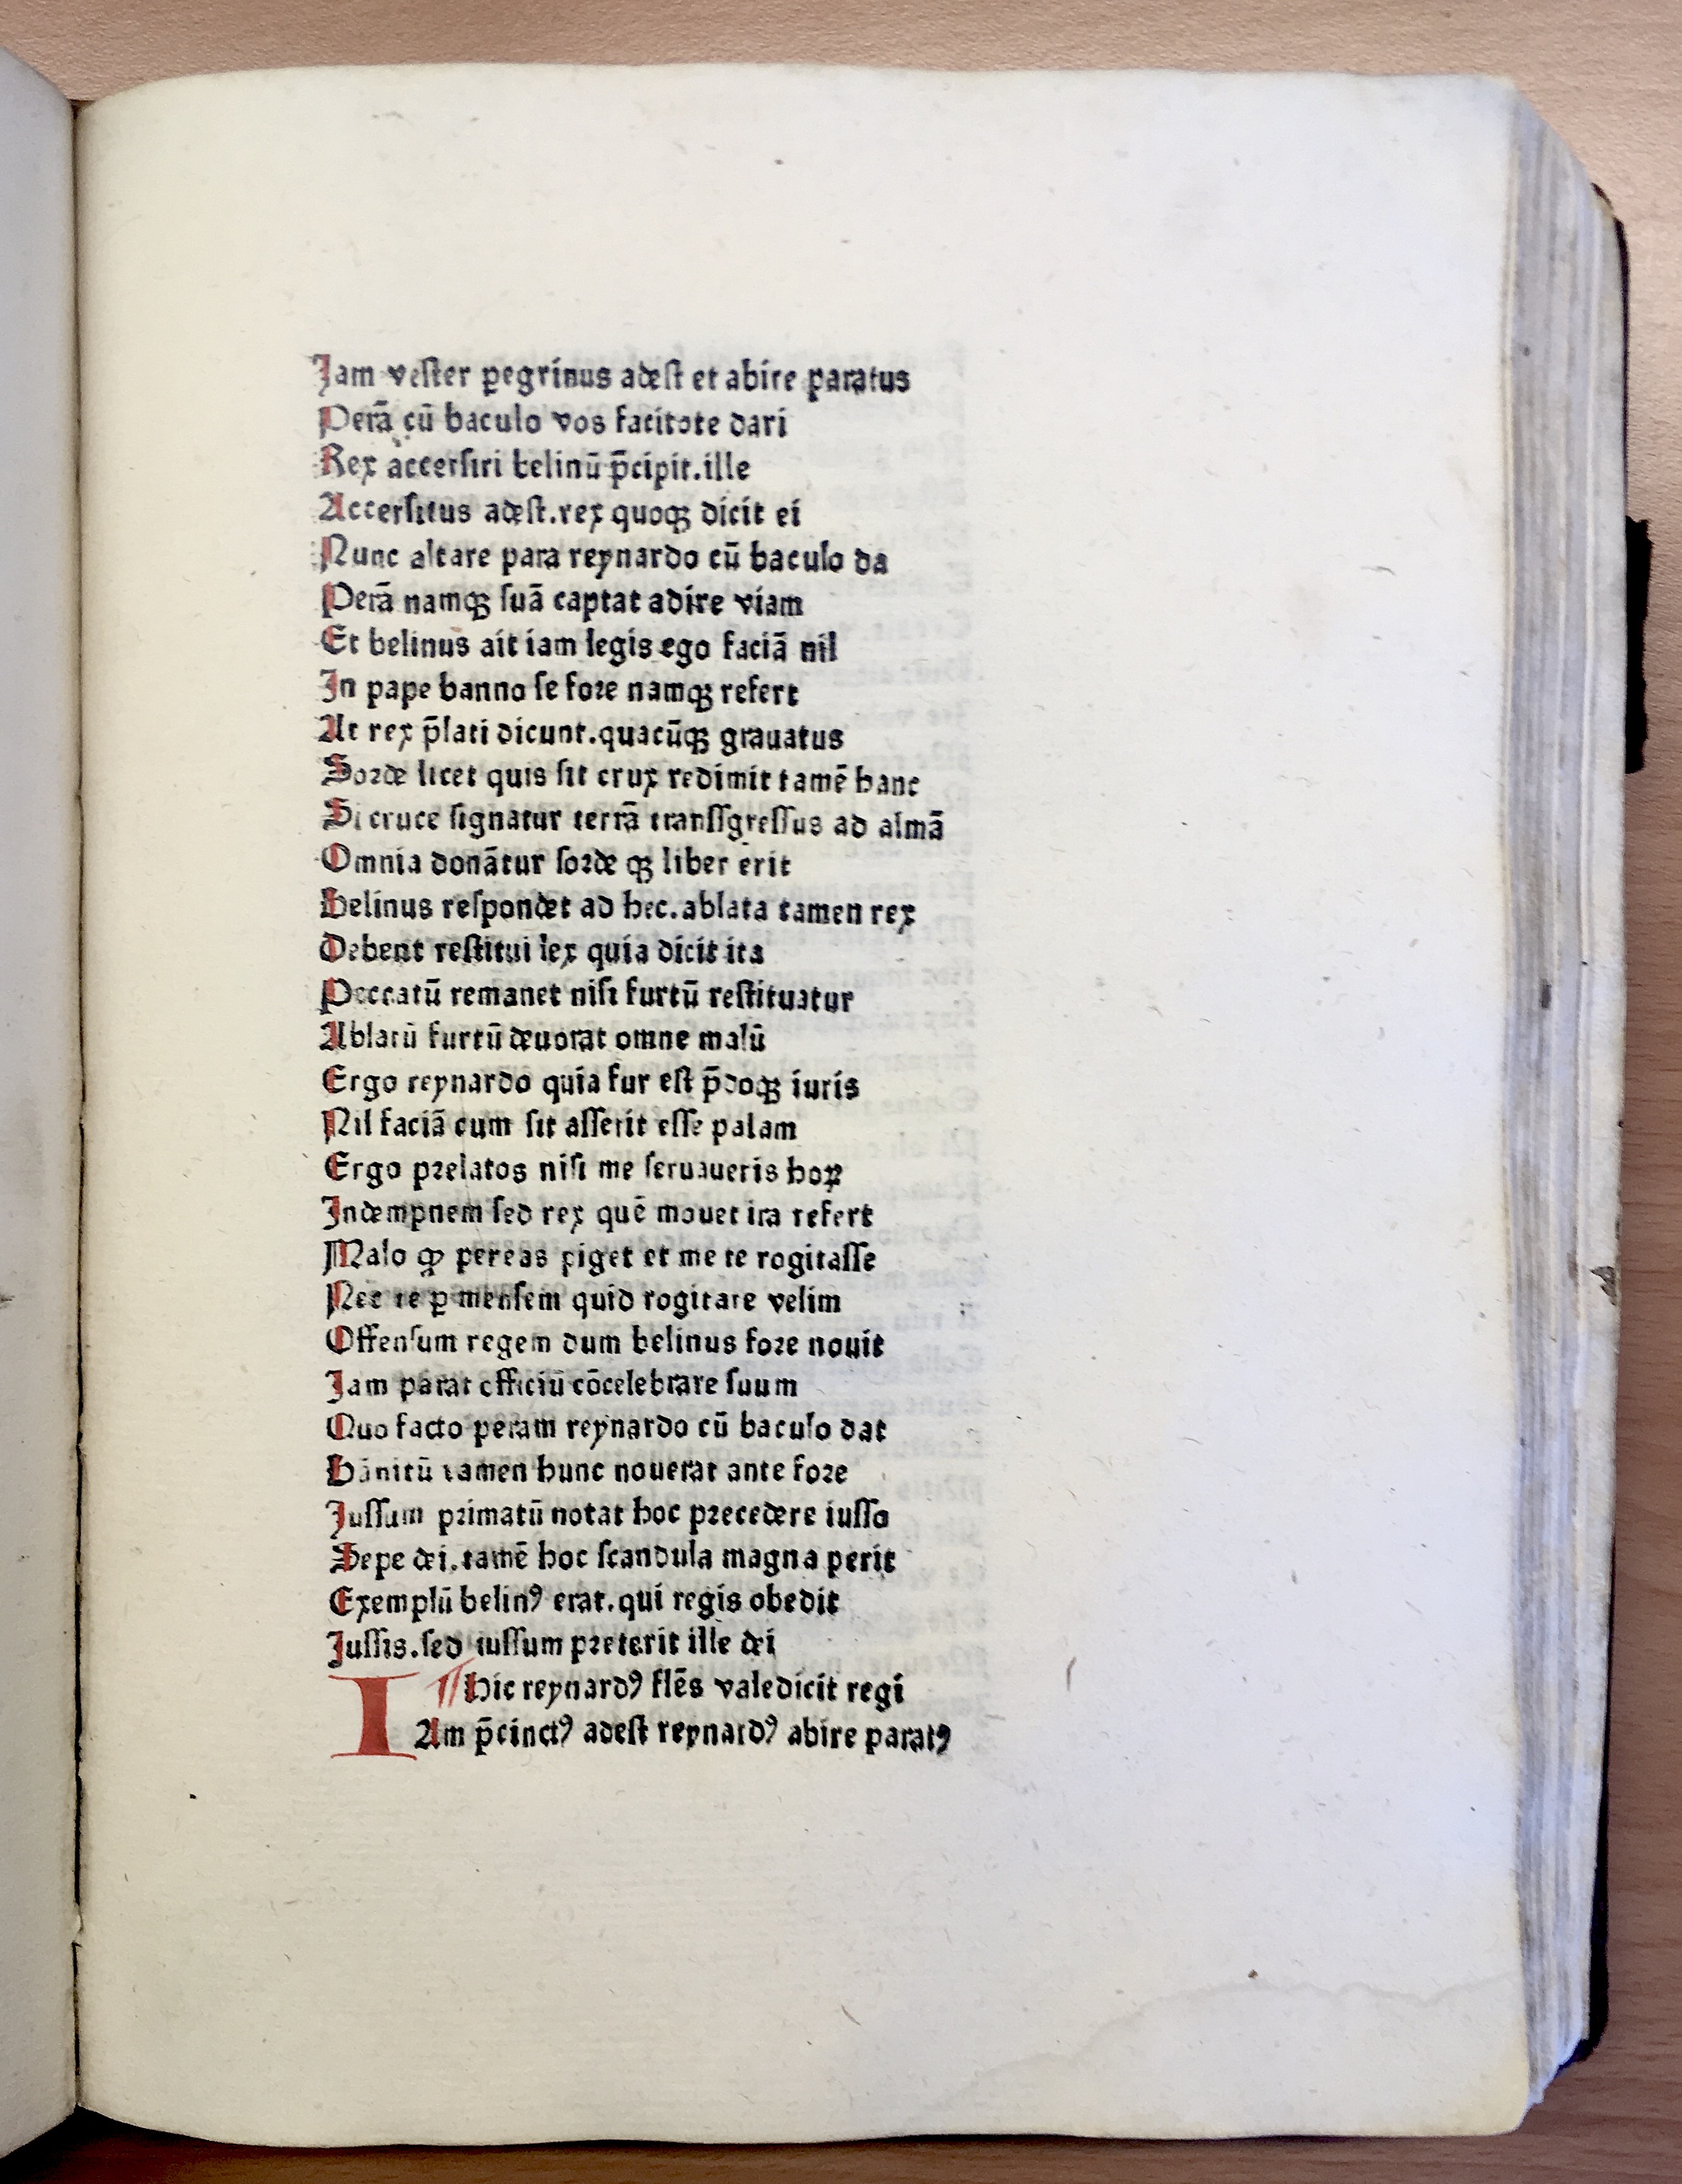 Jam vester ꝑegrinus adest et abire paratus
Perā cū baculo vos facitote dari
Rex accersiri belinū p̄cipit.ille
Accersitus adest.rex quoqꝫ dicit ei
Nunc altare para reynardo cū baculo da
Perā namqꝫ suā captat adire viam
Et belinus ait iam legis ego faciā nil
In pape banno se fore namqꝫ refert
At rex p̄lati dicunt.quacūqꝫ grauatus
Sorde licet quis sit crux redimit tamē hanc
Si cruce signatur terrā transsgressus ad almā
Omnia donātur sorde qꝫ liber erit
Belinus respondet ad hec.ablata tamen rex
Debent restitui lex quia dicit ita
Peccatū remanet nisi furtū restituatur
Ablatū furtū deuorat omne malū
Ergo reynardo quia fur est p̄doqꝫ iuris
Nil faciā cum sit asserit esse palam
Ergo prelatos nisi me seruaueris hoꝝ
Indempnem sed rex quē mouet ira refert
Malo ꝙ pereas piget et me te rogitasse
Nec te ꝑ mensem quid rogitare velim
Offensum regem dum belinus fore nouit
Jam parat officiū cōcelebrare suum
Quo facto peram reynardo cū baculo dat
Bānitū tamen hunc nouerat ante fore
Jussum primatū notat hoc precedere iusso
Sepe dei.tamē hoc scandula magna perit
Exemplū belinꝰ erat.qui regis obedit
Jussis.sed iussum preterit ille dei
¶ Hic reynardꝰ flēs valedicit regi
IAm p̄cinctꝰ adest reynardꝰ abire paratꝰ